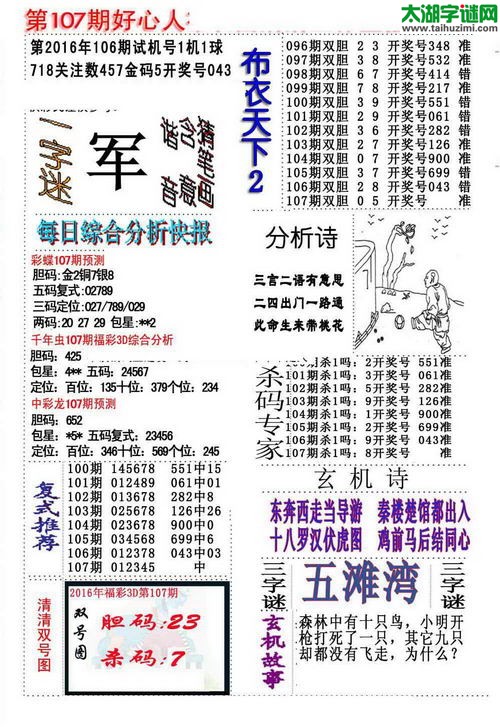 太湖字谜网
www.taihuzimi.com
第107期好心人
第2016年106期试机号1机1球
718关注数457金码5开奖号043
一字迷
军
猜笔画
含意
谐音
每日综合分析快报
彩蝶107期预测
胆码:金2铜7银8
五码复式:02789
三码定位:027/789/029
两码:20 27 29 包星:**2
千年虫107期福彩3D综合分析
胆码: 425
包星: 4** 五码: 24567
定位: 百位: 135十位: 379个位: 234
中彩龙107期预测
胆码: 652
包星: *5* 五码复式: 23456
定位: 百位: 346十位: 569个位: 245
复式推荐
100期 145678 551中15
101期 012489 061中01
102期 013678 282中8
103期 025678 126中26
104期 023678 900中0
105期 034568 699中6
106期 012378 043中03
107期 012345 中
清清双号图
2016年福彩3D第107期
双号图
胆码:23
杀码:7
布衣天下2
096期双胆 2 3 开奖号348 准
097期双胆 3 8 开奖号532 准
098期双胆 6 7 开奖号414 错
099期双胆 7 8 开奖号217 准
100期双胆 3 9 开奖号551 错
101期双胆 2 9 开奖号061 错
102期双胆 3 6 开奖号282 错
103期双胆 2 7 开奖号126 准
104期双胆 0 7 开奖号900 准
105期双胆 3 7 开奖号699 错
106期双胆 2 8 开奖号043 错
107期双胆 0 5 开奖号 准
分析诗
三言二语有意思
二四出门一路通
此命生来带桃花
杀码专家
100期杀1吗: 2开奖号 551准
101期杀1吗: 3开奖号 061准
102期杀1吗: 5开奖号 282准
103期杀1吗: 9开奖号 126准
104期杀1吗: 1开奖号 900准
105期杀1吗: 2开奖号 699准
106期杀1吗: 9开奖号 043准
107期杀1吗: 8开奖号 准
玄机诗
东奔西走当导游 秦楼楚馆都出入
十八罗汉伏虎图 鸡前马后结同心
三字谜
五滩湾
三字谜
玄机故事
森林中有十只鸟,小明开
枪打死了一只,其它九只
却都没有飞走,为什么?